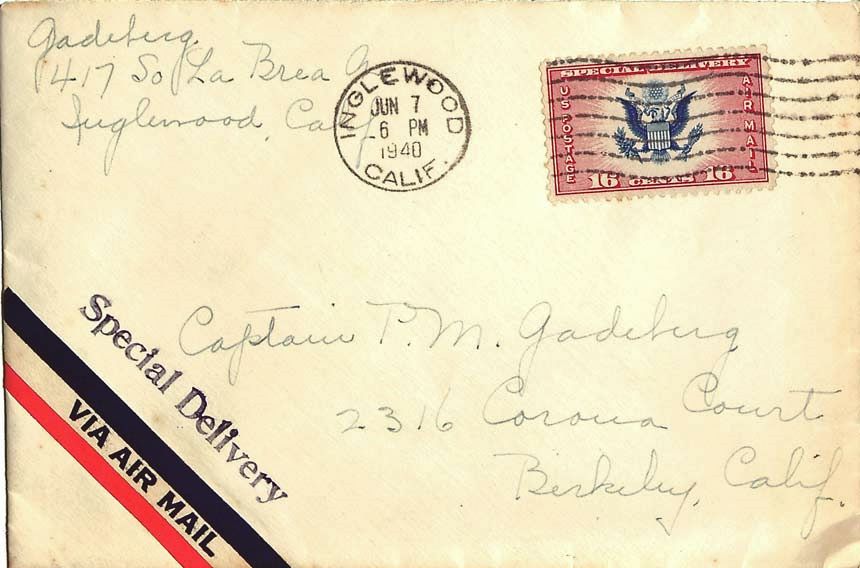 Gadeberg
1417 So La Brea Av
Inglewood, Calif
INGLEWOOD
JUN 7
6 PM
1940
CALIF.
SPECIAL DELIVERY
US POSTAGE
AIR MAIL
16 CENTS 16
Captain P. M. Gadeberg
2316 Corona Court
Berkeley, Calif.
Special Delivery
VIA AIR MAIL